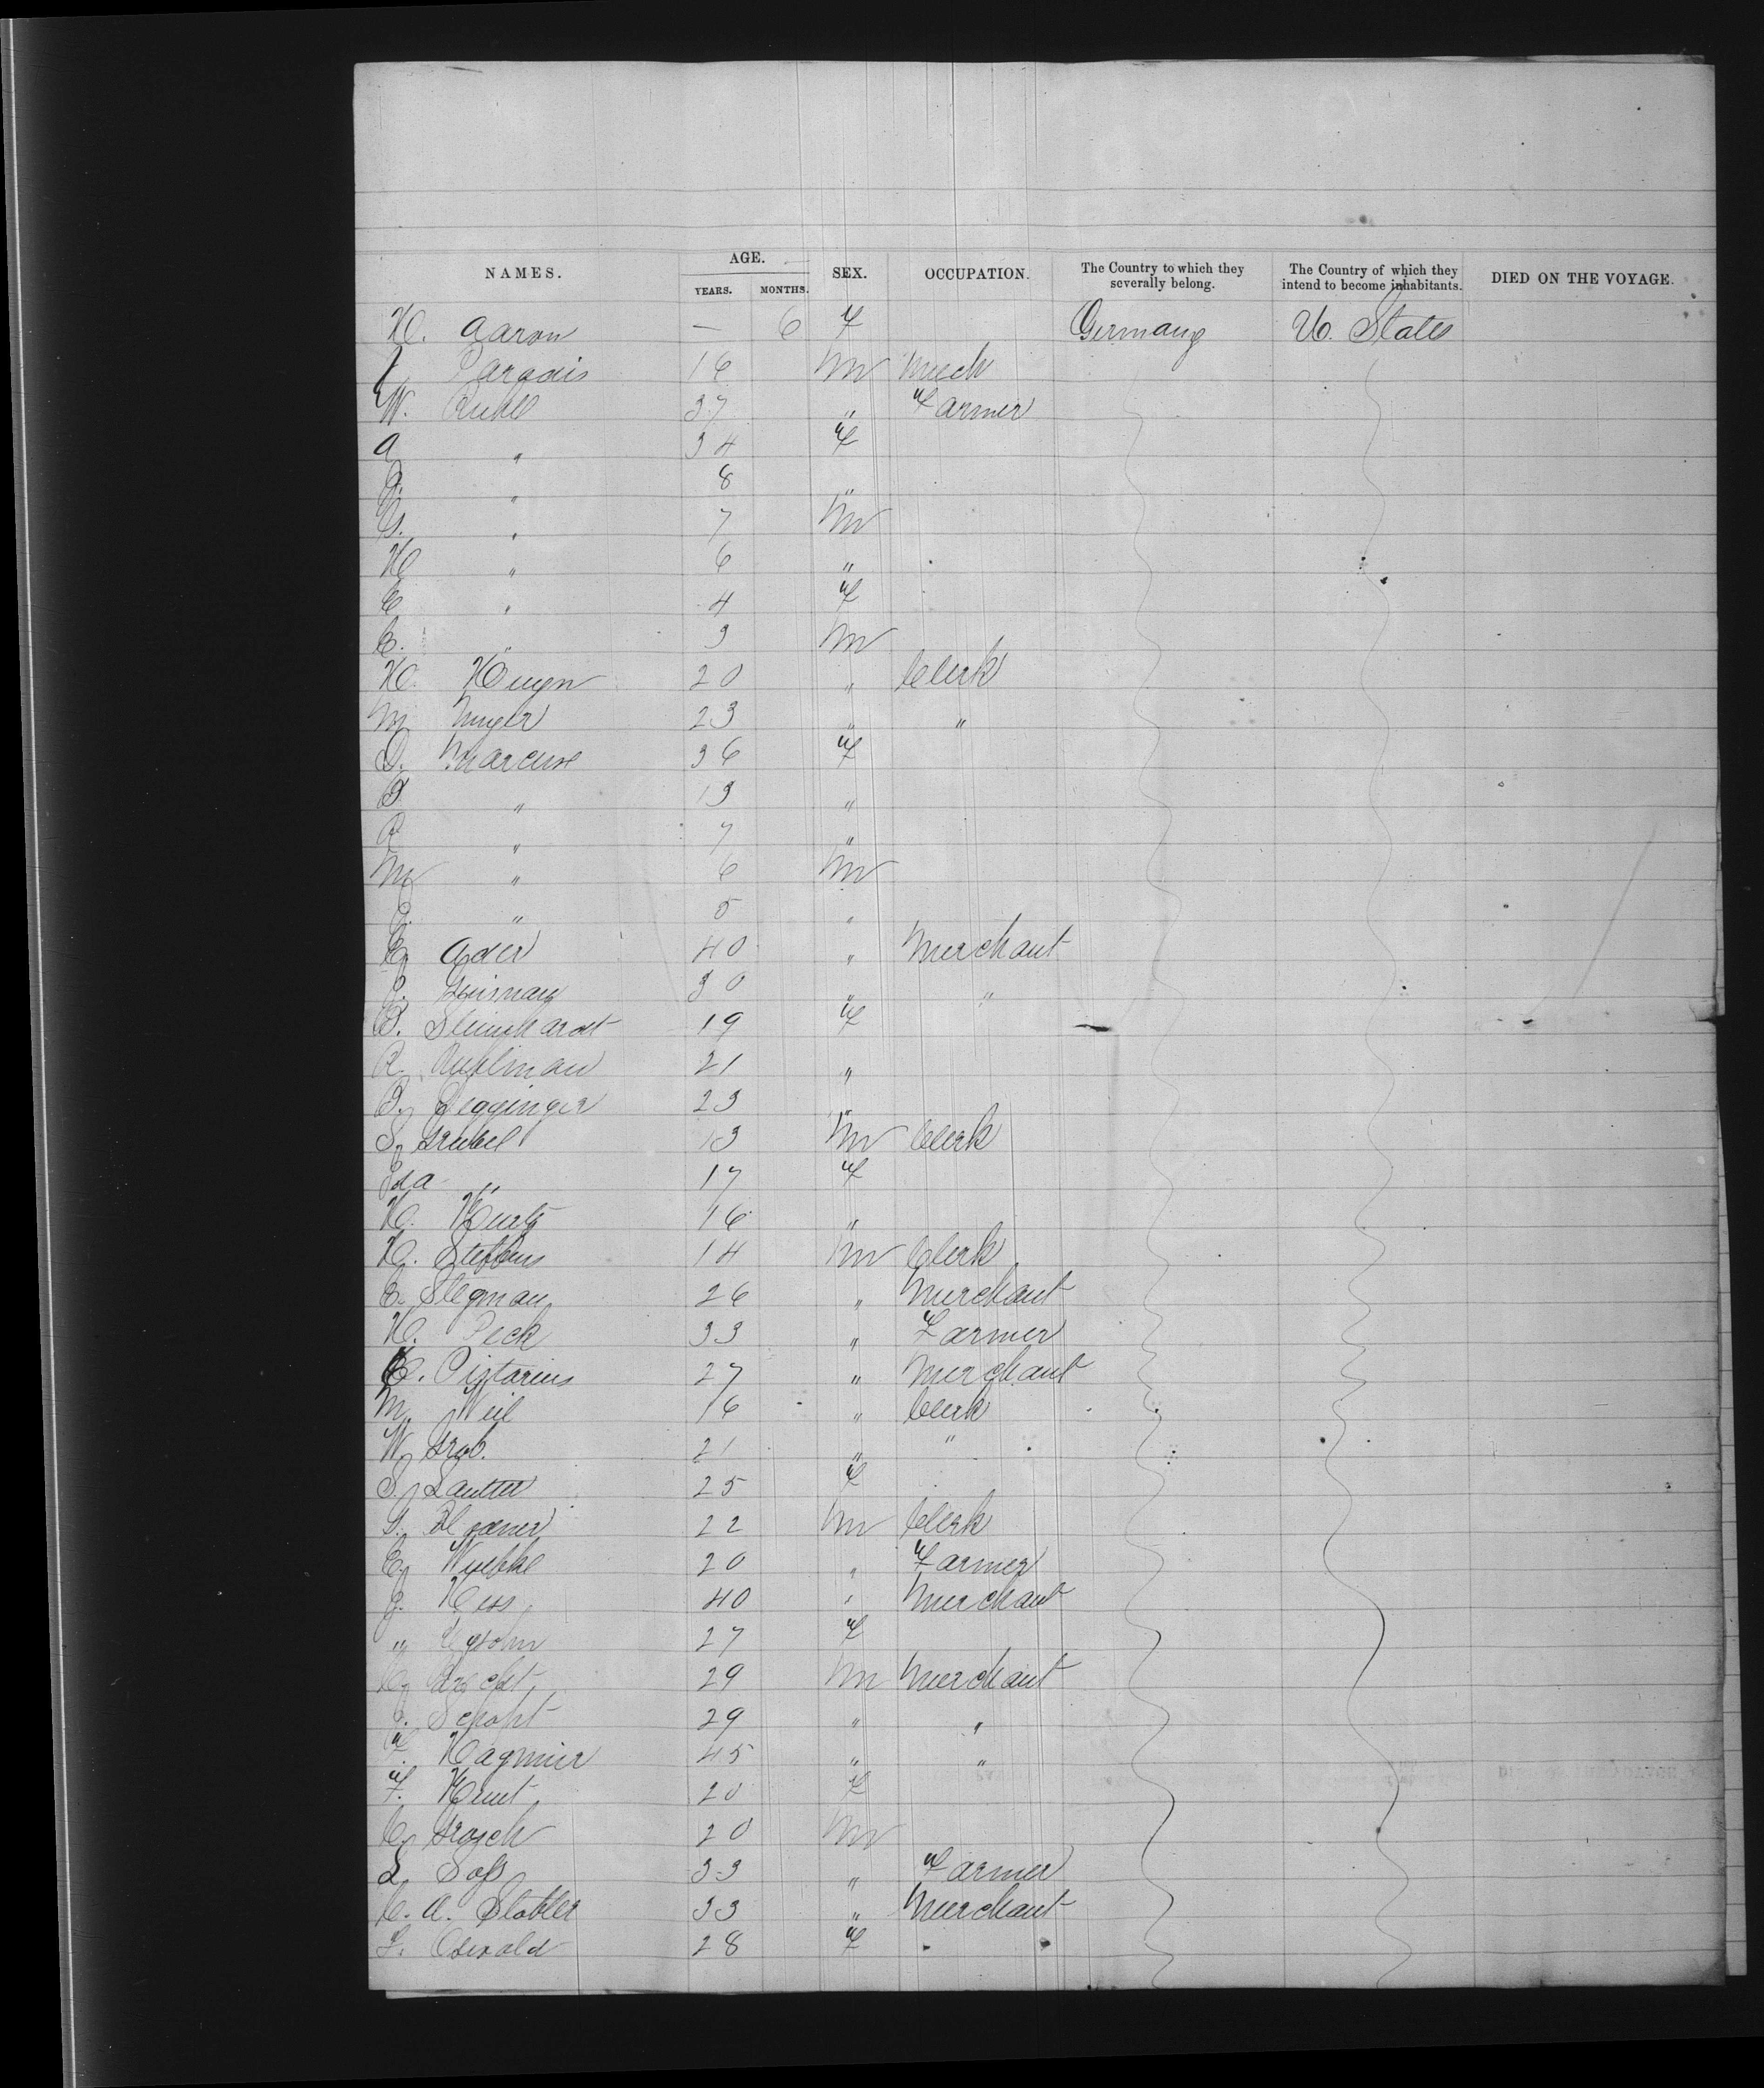 NAMES. AGE. YEARS. MONTHS. SEX. OCCUPATION. The Country to which they severally belong. The Country of which they intend to become inhabitants. DIED ON THE VOYAGE.
H. Aaron — 6 F Germany U. States
Paradis 16 M Mech
W. Ruhl 37 " Farmer
A " 34 F
" 8 "
G. " 7 M
H " 6 "
E " 4 F
C. " 3 M
H. Heyn 20 " Clerk
M Meyer 23 " "
D. Marcuse 36 F
" 13 "
R " 7 "
M " 6 M
" 5 "
C Ader 40 " Merchant
30 " "
B. Steinhardt 19 F
R. Ruhlman 21 "
B. Degginger 23 "
S. Strubel 13 M Clerk
Ida " 17 F
H. Kurtz 16 "
H. Steffens 14 M Clerk
C. Stegman 26 " Merchant
H. Peck 33 " Farmer
C. Pistorius 27 " Merchant
M. Weil 16 " Clerk
W. Grob. 21 " "
S. Lautter 25 F
22 M Clerk
C Wuebke 20 " Farmer
J. Hess 40 " Merchant
" 27 F
29 M Merchant
29 " "
F. Hagmier 45 " "
F. 20 F
C. Grosch 20 M
L 33 " Farmer
C. A. Stobler 33 " Merchant
F. Oswald 28 F